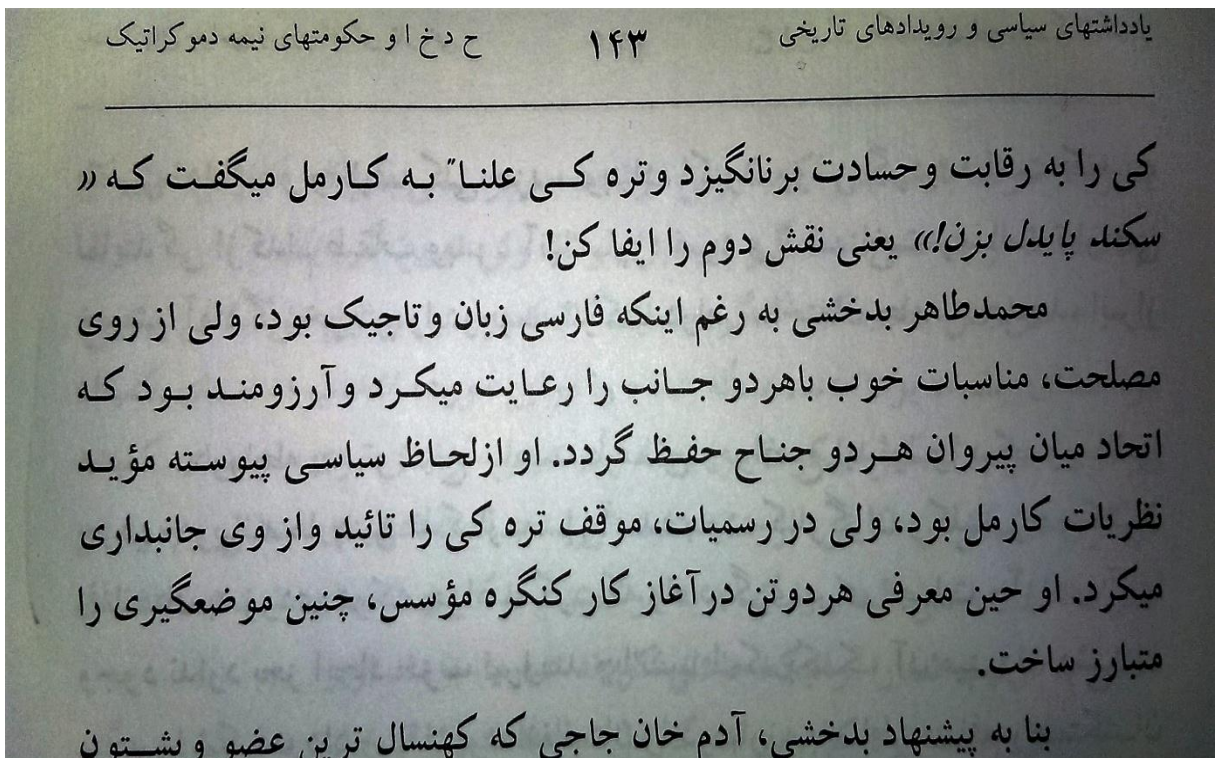 یادداشتهای سیاسی و رویدادهای تاریخی ۱۴۳ ح د خ ا و حکومتهای نیمه دموکراتیک
کی را به رقابت وحسادت برنانگیزد وتره کـــی علنـا ً بـه کـارمل میگفـت کـه «
سکند پایدل بزن!» یعنی نقش دوم را ایفا کن!
محمدطاهر بدخشی به رغم اینکه فارسی زبان وتاجیک بود، ولی از روی
مصلحت، مناسبات خوب باهردو جــانب را رعـایت میکـرد وآرزومنـد بـود کـه
اتحاد میان پیروان هــردو جنـاح حفـظ گردد. او ازلحـاظ سیاسـی پیوسـته مؤیـد
نظریات کارمل بود، ولی در رسمیات، موقف تره کی را تائید واز وی جانبداری
میکرد. او حین معرفی هردوتن درآغاز کار کنگره مؤسس، چنین موضعگیری را
متبارز ساخت.
بنا به پیشنهاد بدخشی، آدم خان جاجی که کهنسال ترین عضو و پشـــتون